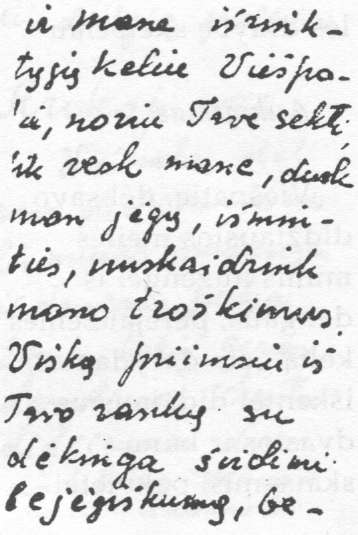 ir mane išrink-
tųjų keliu Viešpa-
a, noriu Tave sekti,
tik vesk mane, duok
man jėgų, išmin-
ties, nuskaidrink
mano troškimus.
Viską priimsiu iš
Tavo rankų su
dėkinga širdimi:
bejėgiškumą, be-